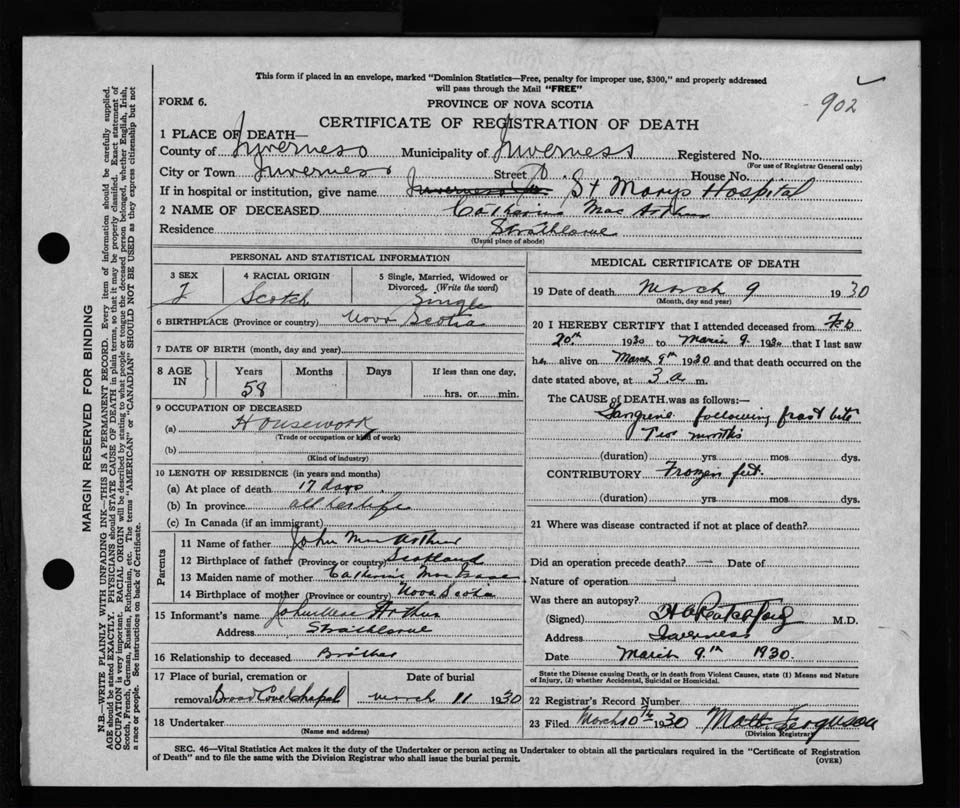 This form if placed in an envelope, marked "Dominion Statistics—Free, penalty for improper use, $300," and properly addressed
will pass through the Mail "FREE"
902
FORM 6.
PROVINCE OF NOVA SCOTIA
CERTIFICATE OF REGISTRATION OF DEATH
1 PLACE OF DEATH—
County of Inverness Municipality of Inverness Registered No.
(For use of Registrar General only)
City or Town Inverness Street House No.
If in hospital or institution, give name St Marys Hospital
2 NAME OF DECEASED Catherine Mac Arthur
Residence Strathlorne
(Usual place of abode)
PERSONAL AND STATISTICAL INFORMATION
3 SEX 4 RACIAL ORIGIN 5 Single, Married, Widowed or
Divorced. (Write the word)
F Scotch Single
6 BIRTHPLACE (Province or country) Nova Scotia
7 DATE OF BIRTH (month, day and year)
8 AGE IN Years Months Days If less than one day,
58 hrs. or min.
9 OCCUPATION OF DECEASED
(a) Housework
(Trade or occupation or kind of work)
(b)
(Kind of industry)
10 LENGTH OF RESIDENCE (in years and months)
(a) At place of death 17 days
(b) In province all her life
(c) In Canada (if an immigrant)
Parents
11 Name of father John MacArthur
12 Birthplace of father (Province or country) Scotland
13 Maiden name of mother Catherine MacIsaac
14 Birthplace of mother (Province or country) Nova Scotia
15 Informant's name John Mac Arthur
Address Strathlorne
16 Relationship to deceased Brother
17 Place of burial, cremation or Date of burial
removal Broad Cove Chapel March 11 1930
18 Undertaker
(Name and address)
MEDICAL CERTIFICATE OF DEATH
19 Date of death March 9 1930
(Month, day and year)
20 I HEREBY CERTIFY that I attended deceased from Feb
20th 1930 to March 9 1930 that I last saw
her alive on March 9th 1930 and that death occurred on the
date stated above, at 3 a m.
The CAUSE of DEATH was as follows:—
Gangrene following frost bite
Two months
(duration) yrs mos dys.
CONTRIBUTORY Frozen feet.
(duration) yrs mos dys.
21 Where was disease contracted if not at place of death?
Did an operation precede death? — Date of
Nature of operation —
Was there an autopsy?
(Signed) M.D.
Address Inverness
Date March 9th 1930.
State the Disease causing Death, or in death from Violent Causes, state (1) Means and Nature
of Injury, (2) whether Accidental, Suicidal or Homicidal.
22 Registrar's Record Number
23 Filed March 10th 1930 Matt. Ferguson
(Division Registrar)
SEC. 46—Vital Statistics Act makes it the duty of the Undertaker or person acting as Undertaker to obtain all the particulars required in the "Certificate of Registration
of Death" and to file the same with the Division Registrar who shall issue the burial permit. (OVER)
MARGIN RESERVED FOR BINDING
N.B.—WRITE PLAINLY WITH UNFADING INK—THIS IS A PERMANENT RECORD. Every item of information should be carefully supplied.
AGE should be stated EXACTLY. PHYSICIANS should STATE CAUSE OF DEATH in plain terms, so that it may be properly classified. Exact statement of
OCCUPATION is very important. RACIAL ORIGIN will be described by stating to what people or tongue the deceased person belonged, whether English, Irish,
Scotch, French, German, Russian, Ruthenian, etc. The terms "AMERICAN" or "CANADIAN" SHOULD NOT BE USED as they express citizenship but not
a race or people. See instructions on back of Certificate.